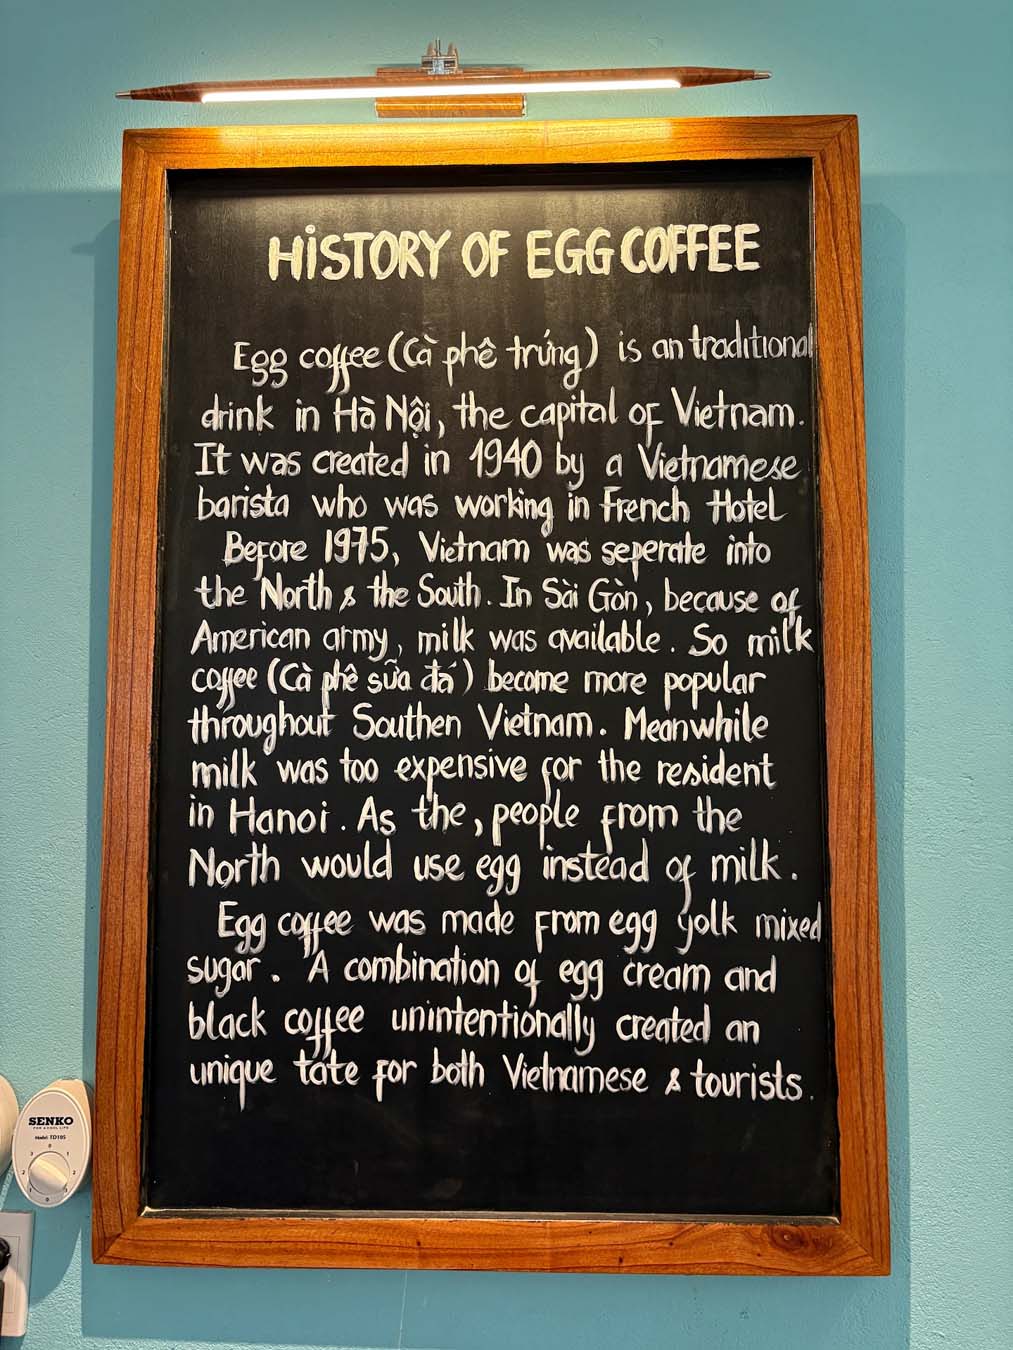 HiSTORY OF EGG COFFEE
Egg coffee (Cà phê trứng) is an traditional
drink in Hà Nội, the capital of Vietnam.
It was created in 1940 by a Vietnamese
barista who was working in French Hotel
Before 1975, Vietnam was seperate into
the North & the South. In Sài Gòn, because of
American army, milk was available. So milk
coffee (Cà phê sữa đá) become more popular
throughout Southen Vietnam. Meanwhile
milk was too expensive for the resident
in Hanoi. As the, people from the
North would use egg instead of milk.
Egg coffee was made from egg yolk mixed
sugar. A combination of egg cream and
black coffee unintentionally created an
unique tate for both Vietnamese & tourists.
SENKO
FOR A COOL LIFE
Model: TD105
0
3 1
2 2
1 3
0